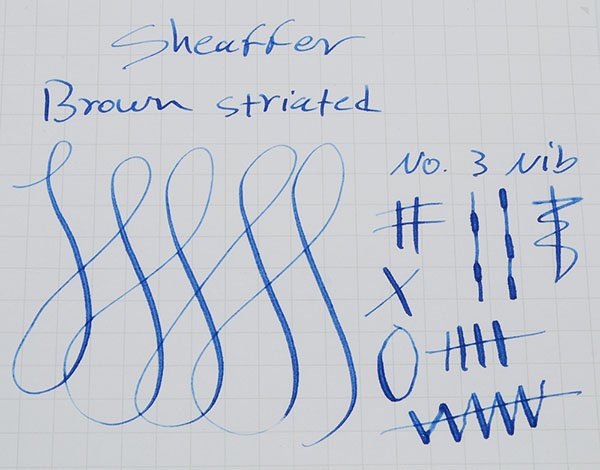 Sheaffer
Brown striated
No. 3 Nib